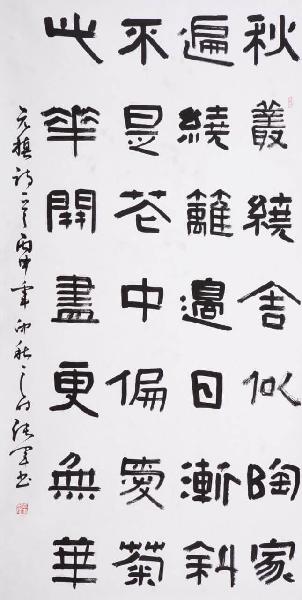 秋叢繞舍似陶家
遍繞籬邊日漸斜
不是花中偏愛菊
此華開盡更無華
元稹詩一首丙申年仲秋之月張軍書